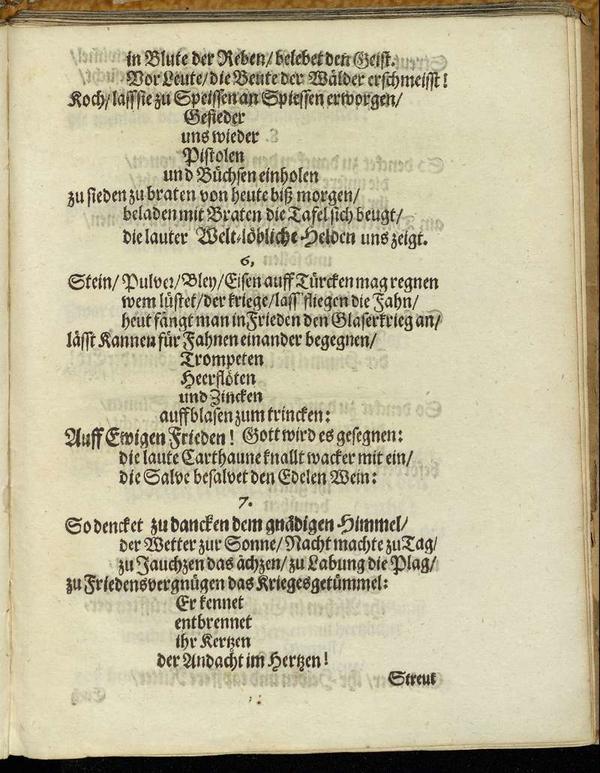 in Blute der Reben/ belebet den Geist.
Vor Leute/ die Beute der Wälder erschmeisst!
Koch/ lass sie zu Speissen an Spiessen erworgen/
Gefieder
uns wieder
Pistolen
und Büchsen einholen
zu sieden zu braten von heute biß morgen/
beladen mit Braten die Tafel sich beugt/
die lauter Welt-löbliche-Helden uns zeigt.
6.
Stein/ Pulver/ Bley/ Eisen auff Türcken mag regnen
wem lüstet/ der kriege/ lass fliegen die Fahn/
heut fängt man in Frieden den Glaserkrieg an/
lässt Kannen für Fahnen einander begegnen/
Trompeten
Heerflöten
und Zincken
auffblasen zum trincken:
Auff Ewigen Frieden! Gott wird es gesegnen:
die laute Carthaune knallt wacker mit ein/
die Salve besalvet den Edelen Wein:
7.
So dencket zu dancken dem gnädigen Himmel/
der Wetter zur Sonne/ Nacht machte zu Tag/
zu Jauchzen das ächzen/ zu Labung die Plag/
zu Friedensvergnügen das Kriegesgetümmel:
Erkennet
entbrennet
ihr Kertzen
der Andacht im Hertzen!
Streut